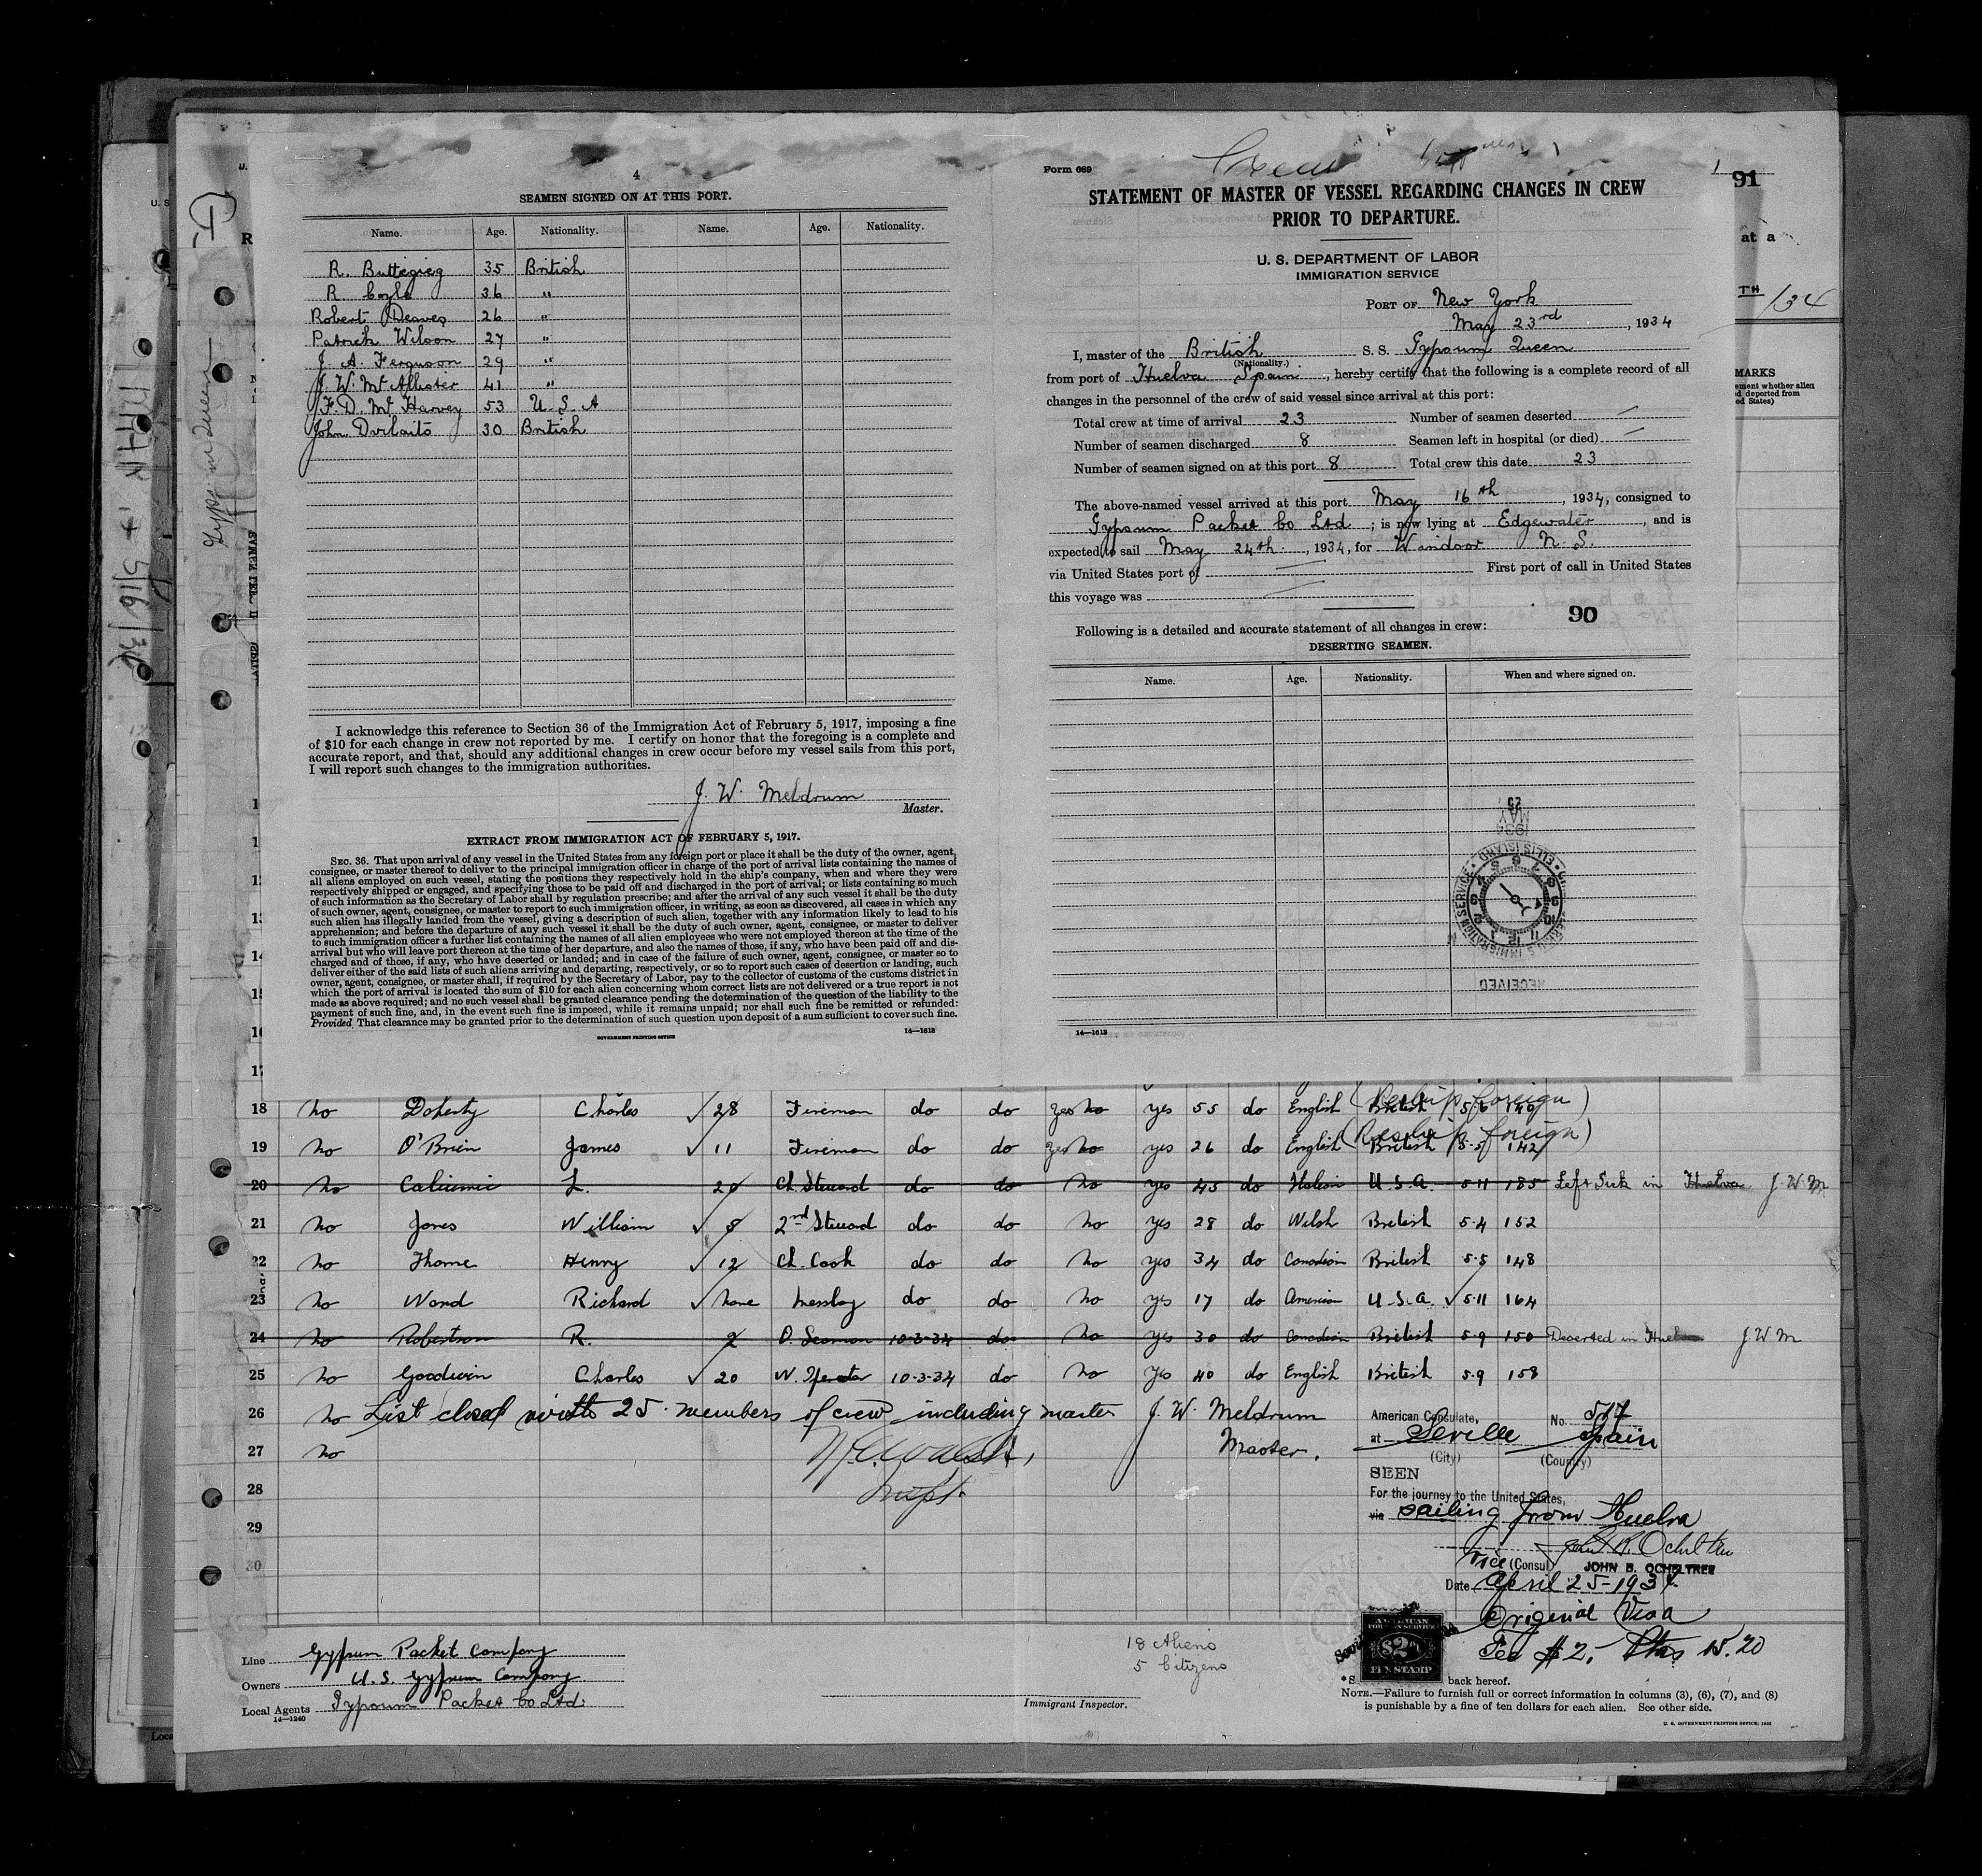 4
SEAMEN SIGNED ON AT THIS PORT.
Name. Age. Nationality. Name. Age. Nationality.
R. Buttegieg 35 British
R Coyle 36 "
Robert Deaves 26 "
Patrick Wilson 27 "
J. A. Ferguson 29 "
J. W. McAllister 41 "
F. D. McHarvey 53 U. S. A
John 30 British
I acknowledge this reference to Section 36 of the Immigration Act of February 5, 1917, imposing a fine
of $10 for each change in crew not reported by me. I certify on honor that the foregoing is a complete and
accurate report, and that, should any additional changes in crew occur before my vessel sails from this port,
I will report such changes to the immigration authorities.
J. W. Meldrum
Master.
EXTRACT FROM IMMIGRATION ACT OF FEBRUARY 5, 1917.
SEC. 36. That upon arrival of any vessel in the United States from any foreign port or place it shall be the duty of the owner, agent,
consignee, or master thereof to deliver to the principal immigration officer in charge of the port of arrival lists containing the names of
all aliens employed on such vessel, stating the positions they respectively hold in the ship's company, when and where they were
respectively shipped or engaged, and specifying those to be paid off and discharged in the port of arrival; or lists containing so much
of such information as the Secretary of Labor shall by regulation prescribe; and after the arrival of any such vessel it shall be the duty
of such owner, agent, consignee, or master to report to such immigration officer, in writing, as soon as discovered, all cases in which any
such alien has illegally landed from the vessel, giving a description of such alien, together with any information likely to lead to his
apprehension; and before the departure of any such vessel it shall be the duty of such owner, agent, consignee, or master to deliver
to such immigration officer a further list containing the names of all alien employees who were not employed thereon at the time of the
arrival but who will leave port thereon at the time of her departure, and also the names of those, if any, who have been paid off and dis-
charged and of those, if any, who have deserted or landed; and in case of the failure of such owner, agent, consignee, or master so to
deliver either of the said lists of such aliens arriving and departing, respectively, or so to report such cases of desertion or landing, such
owner, agent, consignee, or master shall, if required by the Secretary of Labor, pay to the collector of customs of the customs district in
which the port of arrival is located the sum of $10 for each alien concerning whom correct lists are not delivered or a true report is not
made as above required; and no such vessel shall be granted clearance pending the determination of the question of the liability to the
payment of such fine, and, in the event such fine is imposed, while it remains unpaid; nor shall such fine be remitted or refunded:
Provided, That clearance may be granted prior to the determination of such question upon deposit of a sum sufficient to cover such fine.
GOVERNMENT PRINTING OFFICE 14—1613
Form 689
91
STATEMENT OF MASTER OF VESSEL REGARDING CHANGES IN CREW
PRIOR TO DEPARTURE.
U. S. DEPARTMENT OF LABOR
IMMIGRATION SERVICE
PORT OF New York
May 23rd, 1934
I, master of the British S. S. Gypsum Queen
(Nationality.)
from port of Huelva Spain, hereby certify that the following is a complete record of all
changes in the personnel of the crew of said vessel since arrival at this port:
Total crew at time of arrival 23 Number of seamen deserted —
Number of seamen discharged 8 Seamen left in hospital (or died) —
Number of seamen signed on at this port 8 Total crew this date 23
The above-named vessel arrived at this port May 16th, 1934, consigned to
Gypsum Packet Co Ltd; is now lying at Edgewater, and is
expected to sail May 24th, 1934, for Windsor N. S.
via United States port of — First port of call in United States
this voyage was —
90
Following is a detailed and accurate statement of all changes in crew:
DESERTING SEAMEN.
Name. Age. Nationality. When and where signed on.
1934
MAY
25
ELLIS ISLAND
RECEIVED
14—1613
at a
TH /34
MARKS
18 no Doherty Charles 28 Fireman do do yes no yes 55 do English British 5.6 140 (Reship foreign)
19 no O'Brien James 11 Fireman do do yes no yes 26 do English British 5.5 142 (Reship foreign)
20 no L. 20 Ch. Steward do do no yes 45 do Italian U.S.A. 5.11 185 Left Sick in Huelva J.W.M.
21 no Jones William 8 2nd Steward do do no yes 28 do Welsh British 5.4 152
22 no Thorne Henry 12 Ch. Cook do do no yes 34 do Canadian British 5.5 148
23 no Ward Richard none Messboy do do no yes 17 do American U.S.A. 5.11 164
24 no Robertson R. 2 O. Seaman 10-3-34 do no yes 30 do Canadian British 5.9 150 Deserted in Huelva J.W.M
25 no Goodwin Charles 20 W. Operator 10-3-34 do no yes 40 do English British 5.9 158
26 no List closed with 25 members of crew including master J. W. Meldrum
27 no Master.
28
29
30
American Consulate, No. 517
at Seville Spain
(City) (Country)
SEEN
For the journey to the United States,
via sailing from Huelva
Vice (Consul) JOHN B. OCHELTREE
Date April 25-1934
Original Visa
Fee $2, Ptas 15.20
Line Gypsum Packet Company
Owners U.S. Gypsum Company
Local Agents Gypsum Packet Co Ltd.
14—1240
18 Aliens
5 Citizens
Immigrant Inspector.
back hereof.
NOTE.—Failure to furnish full or correct information in columns (3), (6), (7), and (8)
is punishable by a fine of ten dollars for each alien. See other side.
U. S. GOVERNMENT PRINTING OFFICE: 1932